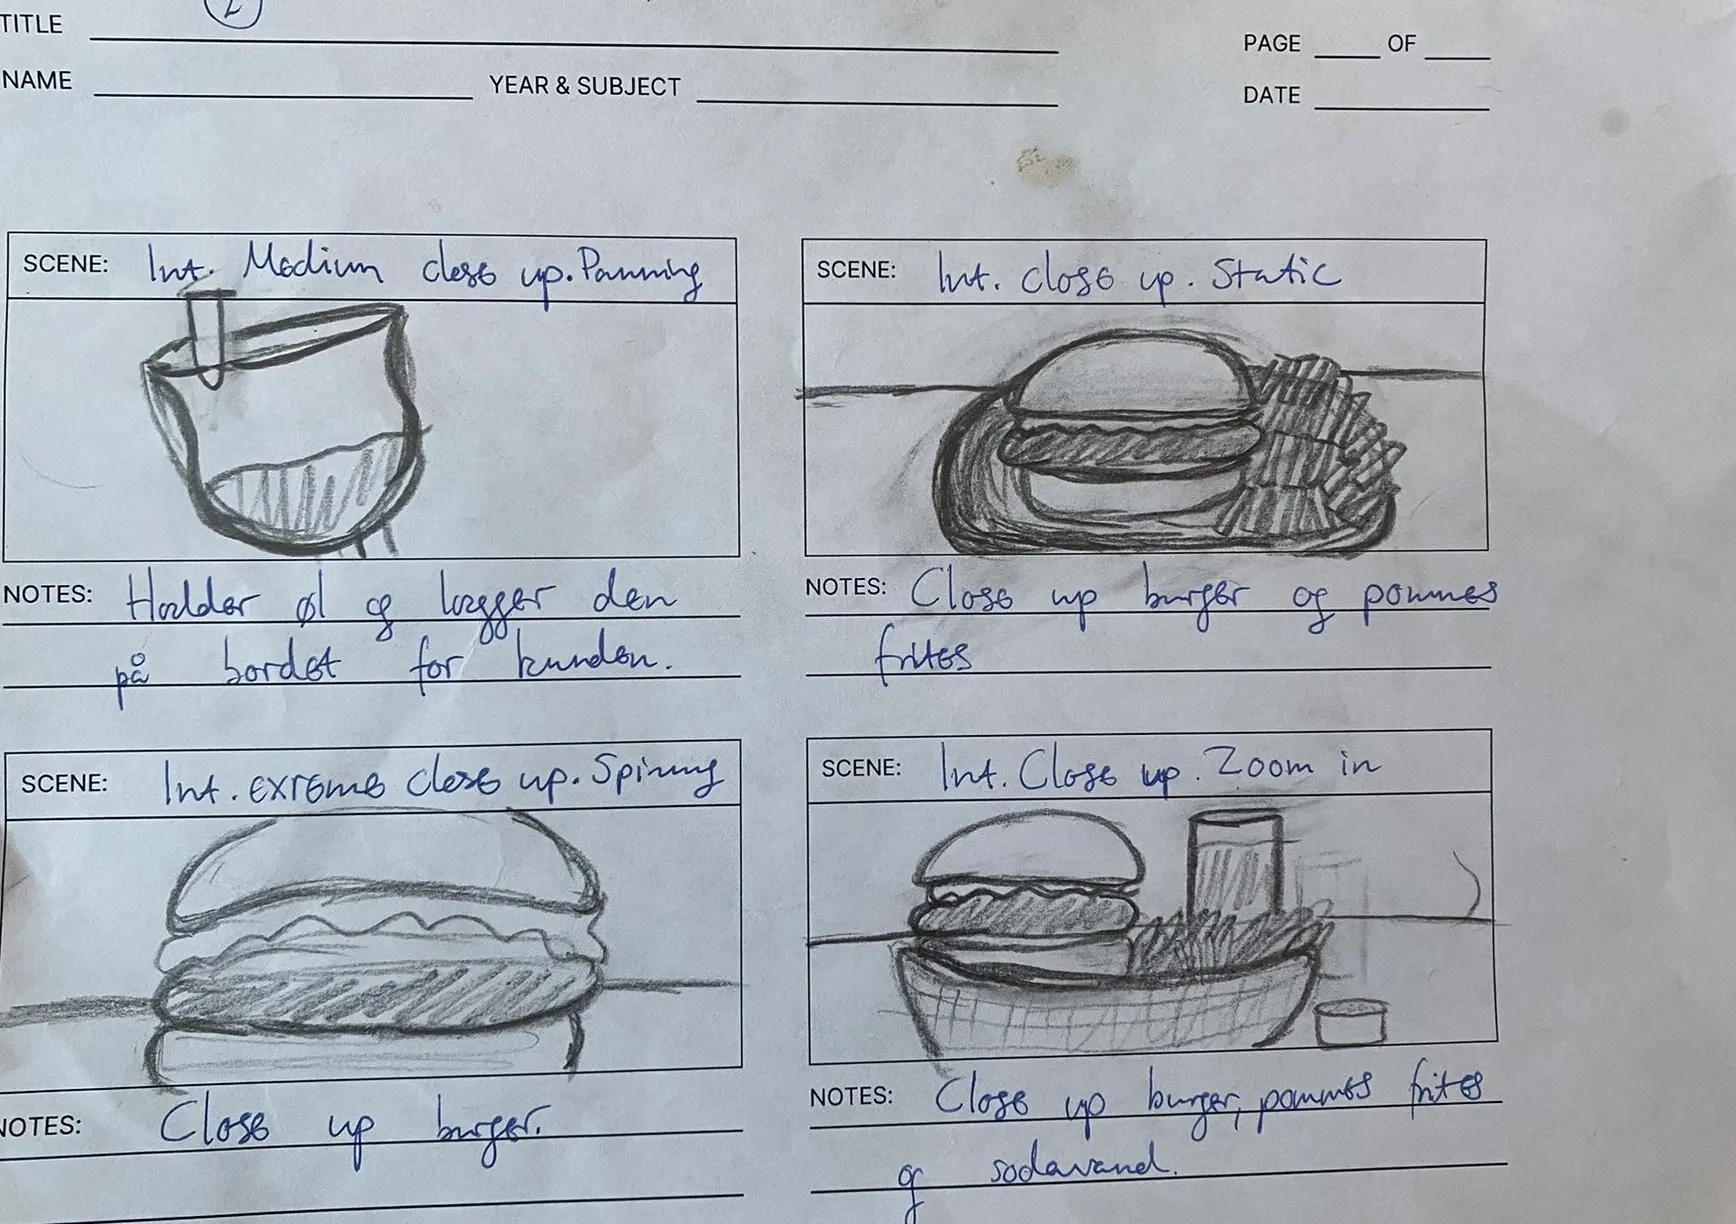 2
TITLE
PAGE OF
NAME YEAR & SUBJECT
DATE
SCENE: Int. Medium close up. Panning
NOTES: Holder øl og lægger den
på bordet for kunden.
SCENE: Int. close up. Static
NOTES: Close up burger og pommes
frites
SCENE: Int. extreme close up. Spining
NOTES: Close up burger.
SCENE: Int. Close up. Zoom in
NOTES: Close up burger, pommes frites
og sodavand.